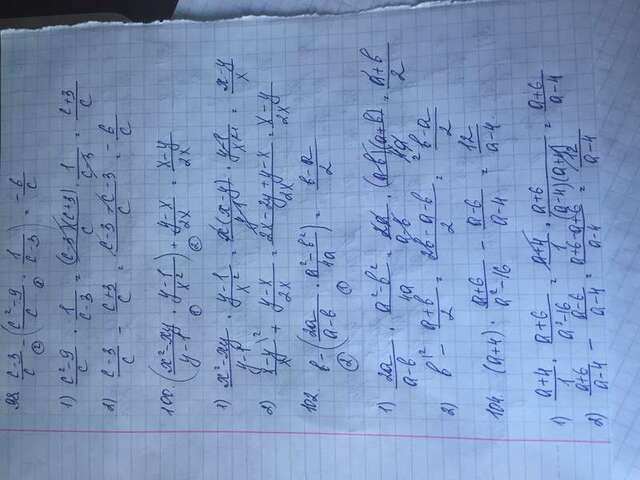 98 (c-3)/c - ((c²-9)/c · 1/(c-3)) = -6/c
② ①
1) (c²-9)/c · 1/(c-3) = (c-3)(c+3)/c · 1/(c-3) = (c+3)/c
2) (c-3)/c - (c+3)/c = (c-3-c-3)/c = -6/c
100. ((x²-xy)/(y-1) · (y-1)/x²) + (y-x)/2x = (x-y)/2x
① ②
1) (x²-xy)/(y-1) · (y-1)/x² = x(x-y)/(y-1) · (y-1)/x² = (x-y)/x
2) (x-y)/x \² + (y-x)/2x = (2x-2y+y-x)/2x = (x-y)/2x
102 в-(2a/(a-в) · (a²-в²)/4a) = (в-a)/2
② ①
1) 2a/(a-в) · (a²-в²)/4a = 2a/(a-в) · (a-в)(a+в)/4a = (a+в)/2
2
2) в\² - (a+в)/2 = (2в-a-в)/2 = (в-a)/2
104 (a+4) · (a+6)/(a²-16) - (a-6)/(a-4) = 12/(a-4)
1) (a+4)/1 · (a+6)/(a²-16) = (a+4)/1 · (a+6)/((a-4)(a+4)) = (a+6)/(a-4)
2) (a+6)/(a-4) - (a-6)/(a-4) = (a+6-a+6)/(a-4) = 12/(a-4)